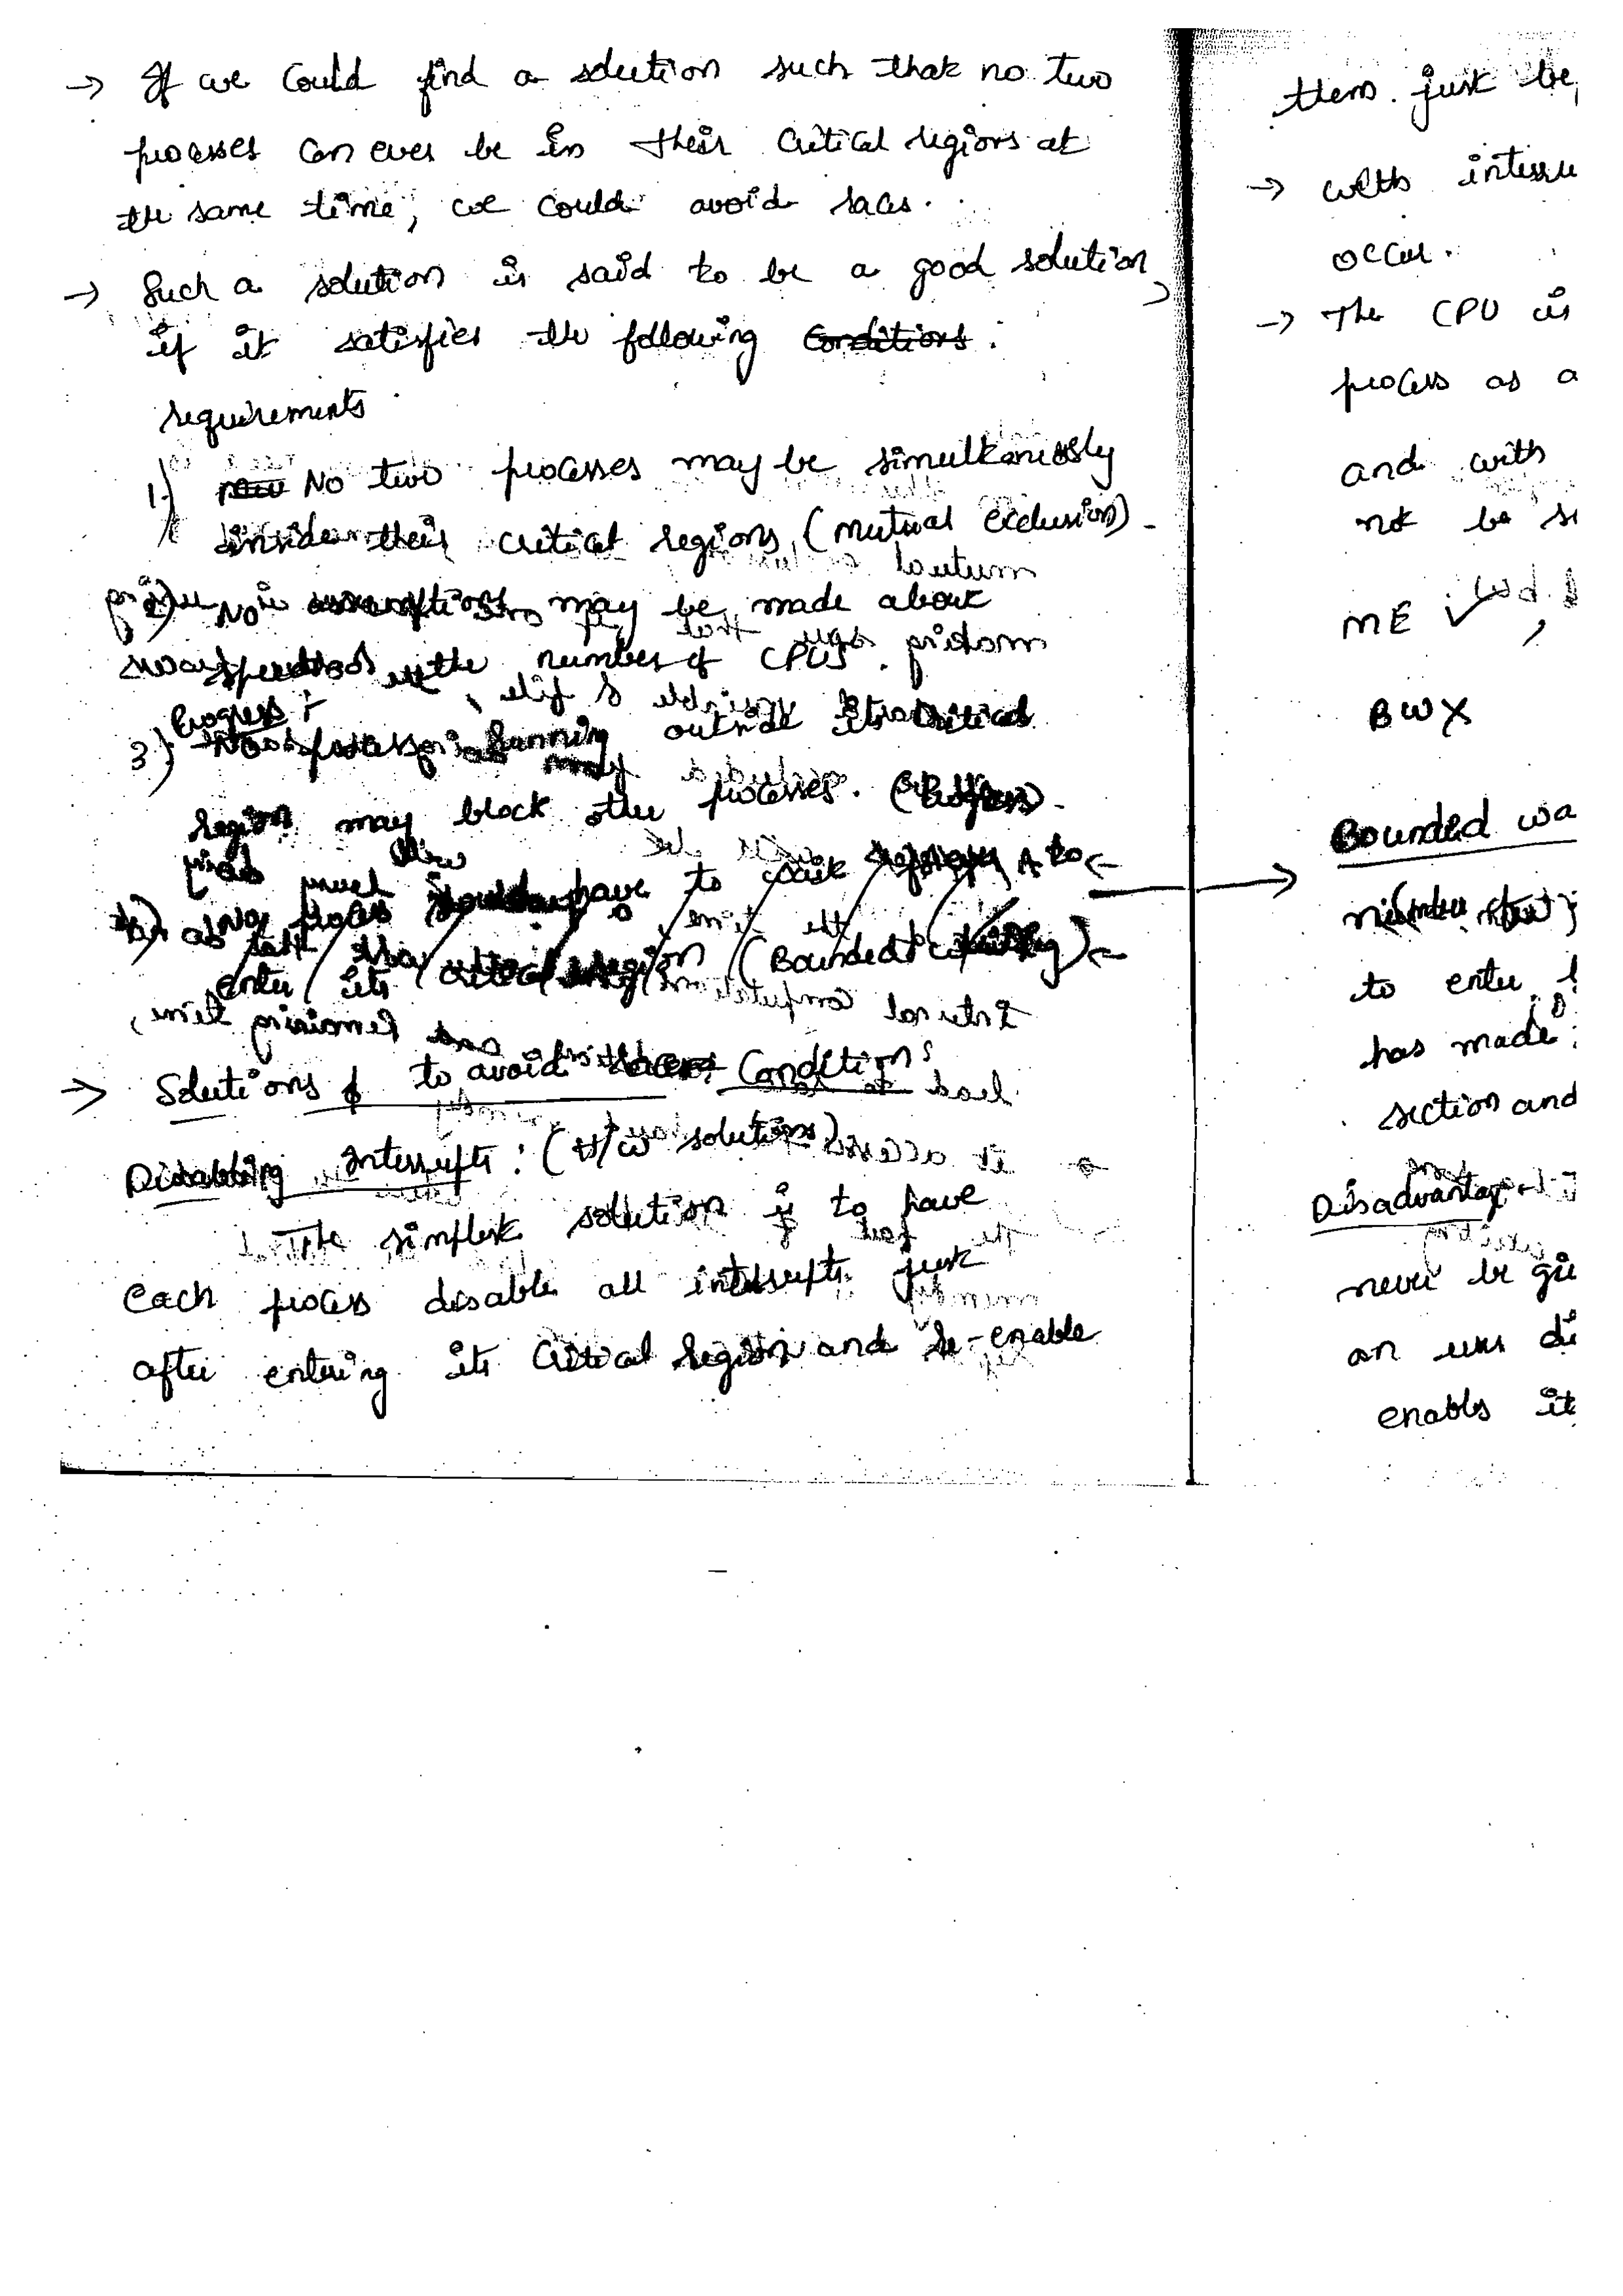 → If we could find a solution such that no two
processes can ever be in their critical regions at
the same time, we could avoid races.
→ Such a solution is said to be a good solution
if it satisfies the following conditions.
requirements
1) No two processes may be simultaneously
inside their critical regions (mutual exclusion).
2) No assumptions may be made about
speeds or the number of CPUs.
Progress :
3) No process running outside its critical
region may block other processes. (Progress).
4) No process should have to wait forever to
enter its critical region (Bounded waiting)
→ Solutions to avoid race Condition:
Disabling Interrupts: (H/W solutions)
The simplest solution is to have
each process disable all interrupts just
after entering its critical region and re-enable
them just be
→ with interru
occur.
→ The CPU is
process as a
and with
not be s
ME ✓,
BWX
Bounded wa
to enter
has made
section and
Disadvantage
never be gi
an user di
enables it